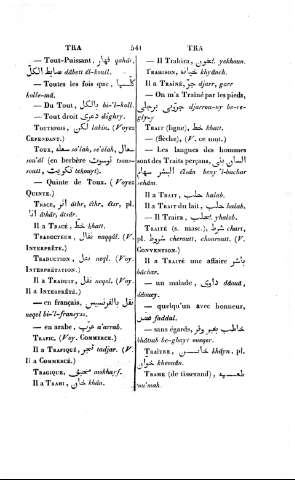 TRA 541 TRA
— Tout-Puissant, قهار qohâr.
ضابط الكلّ dâbett êl-koull.
— Toutes les fois que, كلّما
kolle-mâ.
— Du Tout, بالكلّ bi-'l-koll.
— Tout droit دغري doghry.
TOUTEFOIS, لكن lakin. (Voyez
CEPENDANT.)
TOUX, سعلة so'lah, so'êlah,
soa'âl (en berbère
tekouyt).
— Quinte de Toux. (Voyez
QUINTE.)
TRACE, أثر âthr, êthr, êter, pl.
آثار âthâr, âtsâr.
Il a TRACÉ, خط khatt.
TRADUCTEUR, نقال naqqâl. (V.
INTERPRÈTE.)
TRADUCTION, نقل neql. (Voyez
INTERPRÉTATION.)
Il a TRADUIT, نقل neqel. (Voyez
Il a INTERPRÉTÉ.)
— en français, نقل بالفرنسيس
neqel bi-'l-fransys.
— en arabe, عرّب a'arrab.
TRAFIC. (Voy. COMMERCE.)
Il a TRAFIQUÉ, تجر tadjar. (V.
Il a COMMERCÉ.)
TRAGIQUE,
Il a TRAHI, خان khân.
— Il Trahira, يخون yekhoun.
TRAHISON, خيانة khyâneh.
Il a TRAÎNÉ, جرّ djarr, gerr
— On m'a Traîné par les pieds,
جرّوني برجلي djarrou-ny be-re-
gly-y
TRAIT (ligne), خط khatt.
— (flèche), (V. ce mot.)
— Les langues des hommes
sont des Traits perçans, ألسان بني
البشر سهام êlsân beny 'l-bachar
sehâm.
Il a TRAIT, حلب halab.
— Il a TRAIT du lait, حلب halab.
— Il Traira, يحلب yhaleb.
TRAITÉ (s. masc.), شرط chart,
pl. شروط cheroutt, chouroutt. (V.
CONVENTION.)
Il a TRAITÉ une affaire باشر
bâchar.
— un malade, داوى dâoud,
ddouey.
— quelqu'un avec honneur,
فضل faddal.
— sans égards, خاطب بغير وقر
khâtab be-ghayr ouaqer.
TRAÎTRE, خاين khâyn, pl.
خوان khouân.
TRAME (de tisserand), طعمة
tou'mah.